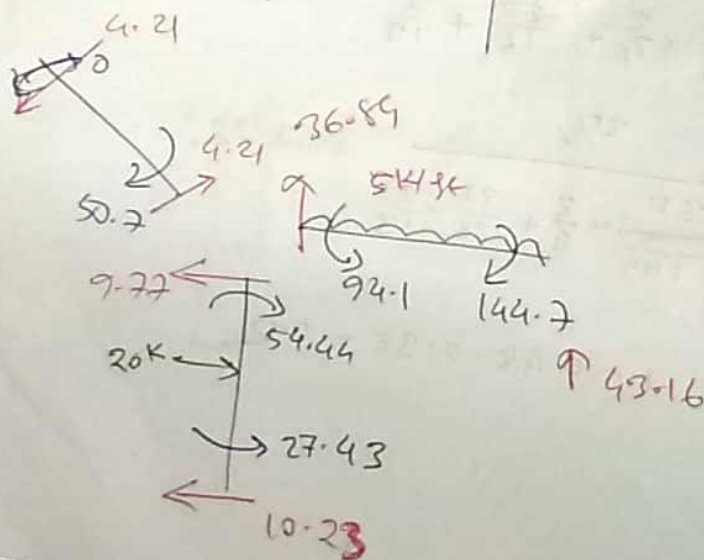 4.21
0
4.21
50.7
36.84
5k/ft
94.1
144.7
43.16
9.77
54.44
20k
27.43
10.23